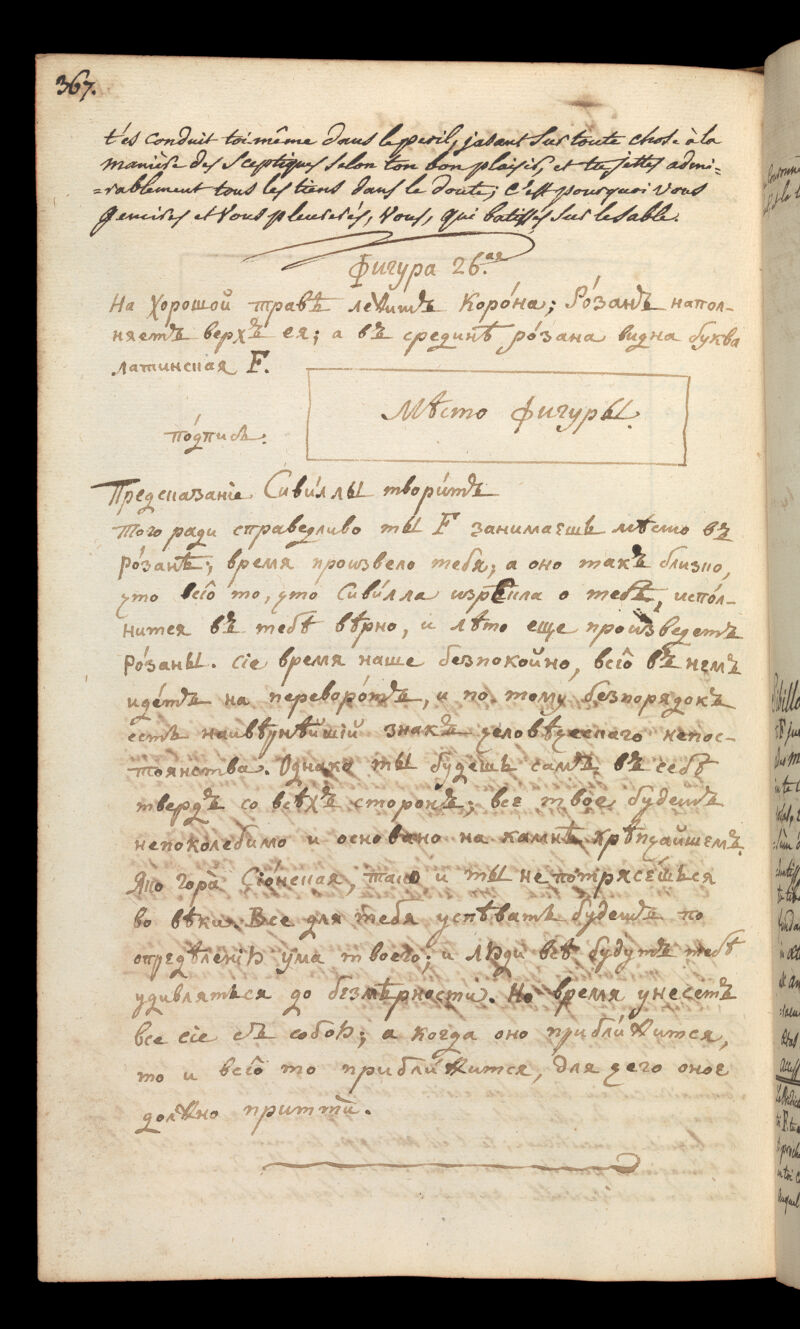 367.
t'es conduit toi-même dans le peril, jasant sur toute chose à la
manière des Sceptiques selon ton bon plaisir, et tu jettes admi=
=rablement tous les tiens dans le doute; c'est pourquoi vous
gemirés et vous pleurerés, vous, qui batissés sur le sable.
Фигура 26.ая
На хорошой травѣ лежитъ Коро́на; Ро́занъ напол-
няетъ верхъ ея; а въ срединѣ ро́зана видна буква
латинская F.
Мѣсто фигуры.
по́дпись.
Предсказанiе Сиви́ллы твори́тъ
Того ради справедливо ты F занимаешь мѣсто въ
Ро́занѣ; время произвело тебя; а оно такъ близко,
что всiо то, что Сиви́лла изрекла о тебѣ, испо́л-
нится въ тебѣ вѣрно, и лѣто еще произведетъ
Ро́заны. сiе время наше безпокойно, всiо въ немъ
иде́тъ на переворо́тъ, и по тому безпорядокъ
есть наивѣрнѣйшiй знакъ человѣческаго непос-
тоянства. Однако ты будешь самъ въ себѣ
твердъ со всѣхъ сторонъ; все твое будетъ
непоколебимо и основано на камнѣ крѣпчайшемъ.
Яко гора̀ Сiо́нская, тако и ты не потрясе́шься
во вѣки. Все для тебя успѣвать будетъ по
опредѣленiю ума твоего; и люди всѣ будутъ тебѣ
удивляться до безмѣрности. Но время унесетъ
все сiе съ собою; а когда оно прибли́жится,
то и всiо то прибли́жится, для чего оное
должно притти̇.